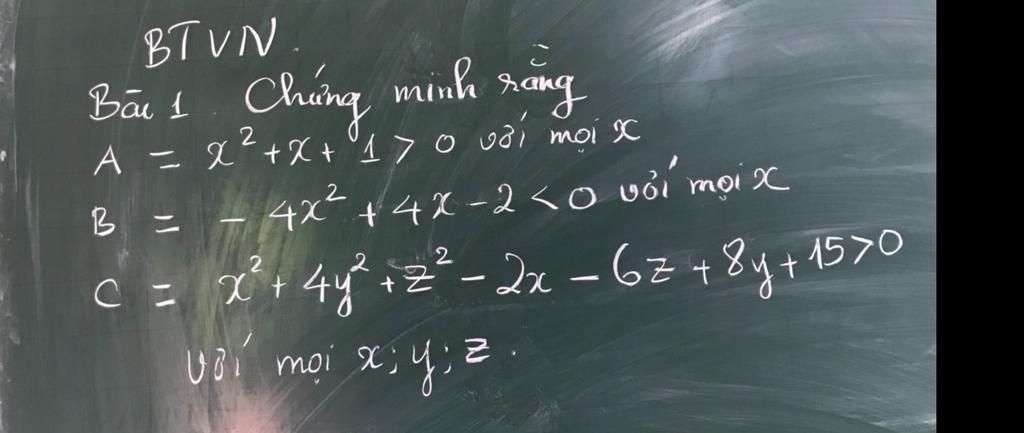 BTVN.
Bài 1. Chứng minh rằng
A = x² + x + 1 > 0 với mọi x
B = - 4x² + 4x - 2 < 0 với mọi x
C = x² + 4y² + z² - 2x - 6z + 8y + 15 > 0
với mọi x; y; z.